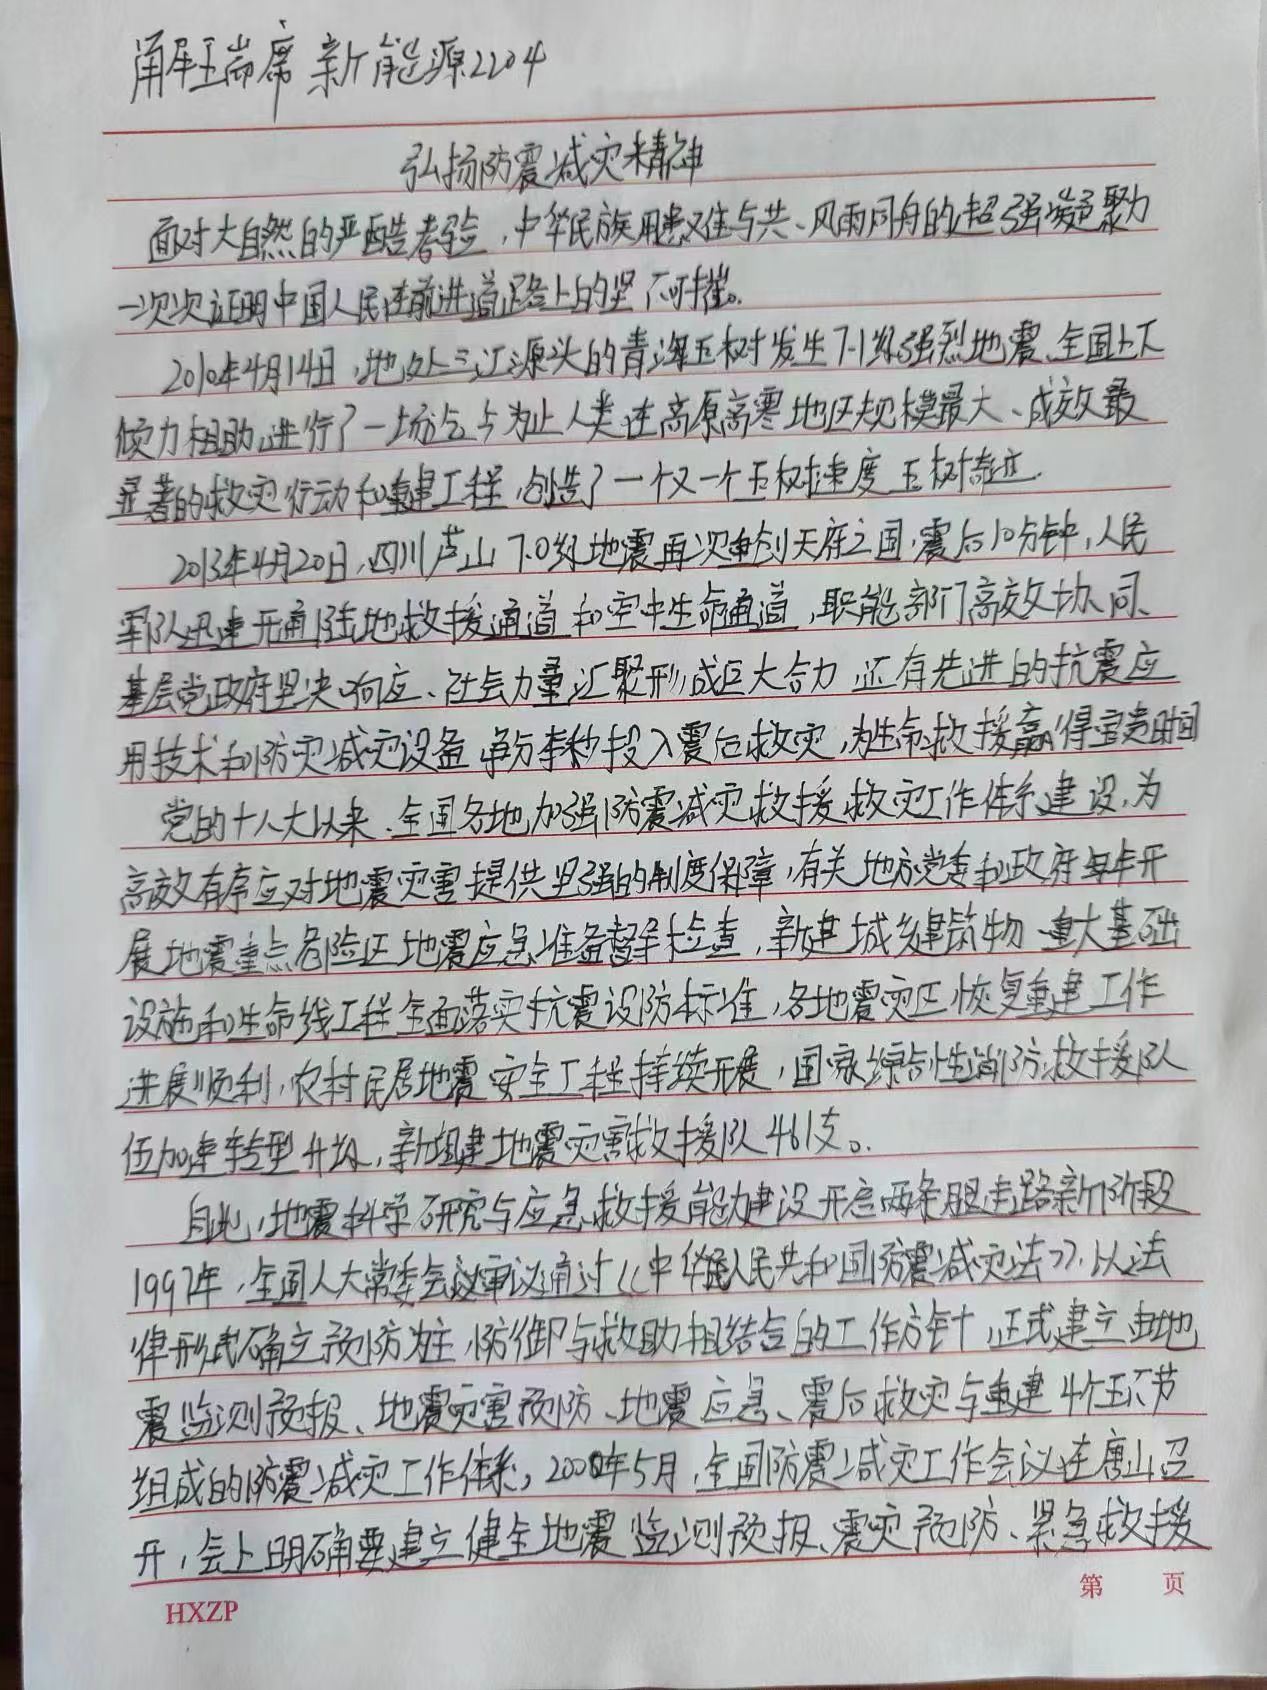 瑞席 新能源2204
弘扬防震减灾精神
面对大自然的严酷考验，中华民族用患难与共、风雨同舟的超强凝聚力
一次次证明中国人民在前进道路上的坚不可摧。
2010年4月14日，地处三江源头的青海玉树发生7.1级强烈地震、全国上下
倾力相助，进行了一场迄今为止人类在高原高寒地区规模最大、成效最
显著的救灾行动和重建工程，创造了一个又一个玉树速度 玉树奇迹.
2013年4月20日，四川芦山7.0级地震再次重创天府之国，震后10分钟，人民
军队迅速开通陆地救援通道和空中生命通道，职能部门高效协同、
基层党政府坚决响应、社会力量汇聚形成巨大合力，还有先进的抗震应
用技术和防灾减灾设备 争分秒投入震后救灾，为生命救援赢得宝贵时间
党的十八大以来、全国各地加强防震减灾救援救灾工作体系建设，为
高效有序应对地震灾害提供坚强的制度保障，有关地方党委和政府每年开
展地震重点危险区地震应急准备督导检查，新建城乡建筑物、重大基础
设施和生命线工程全面落实抗震设防标准，各地震灾区恢复重建工作
进展顺利，农村民居地震安全工程持续开展，国家综合性消防救援队
伍加速转型升级，新组建地震灾害救援队461支。
自此，地震科学研究与应急救援能力建设开启两条腿走路新阶段
1997年，全国人大常委会议审议通过《中华人民共和国防震减灾法》，以法
律形式确立预防为主，防御与救助相结合的工作方针，正式建立由地
震监测预报、地震灾害预防、地震应急、震后救灾与重建4个环节
组成的防震减灾工作体系，2000年5月，全国防震减灾工作会议在唐山召
开，会上明确要建立健全地震监测预报、震灾预防、紧急救援
HXZP
第 页